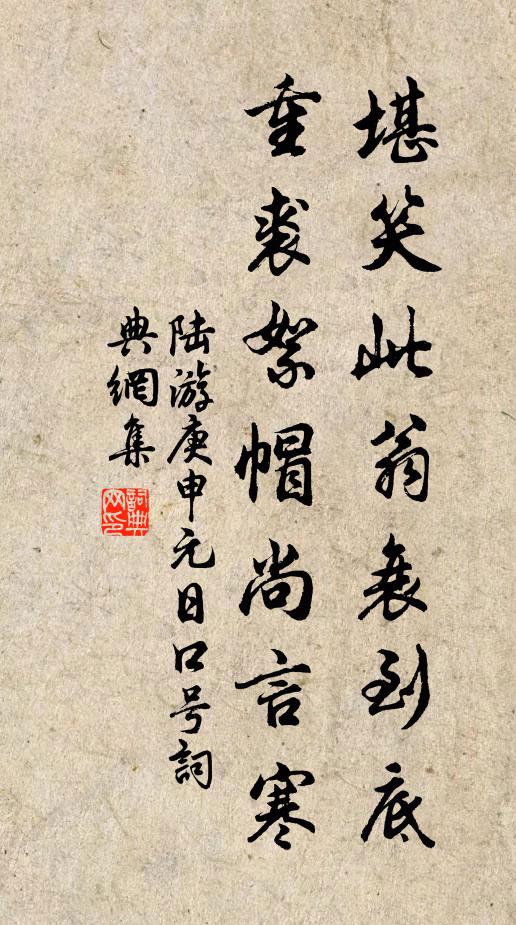 堪笑此翁衰到底
重裘絮帽尚言寒
陆游庚申元日口号詞
典網集
詞典网印